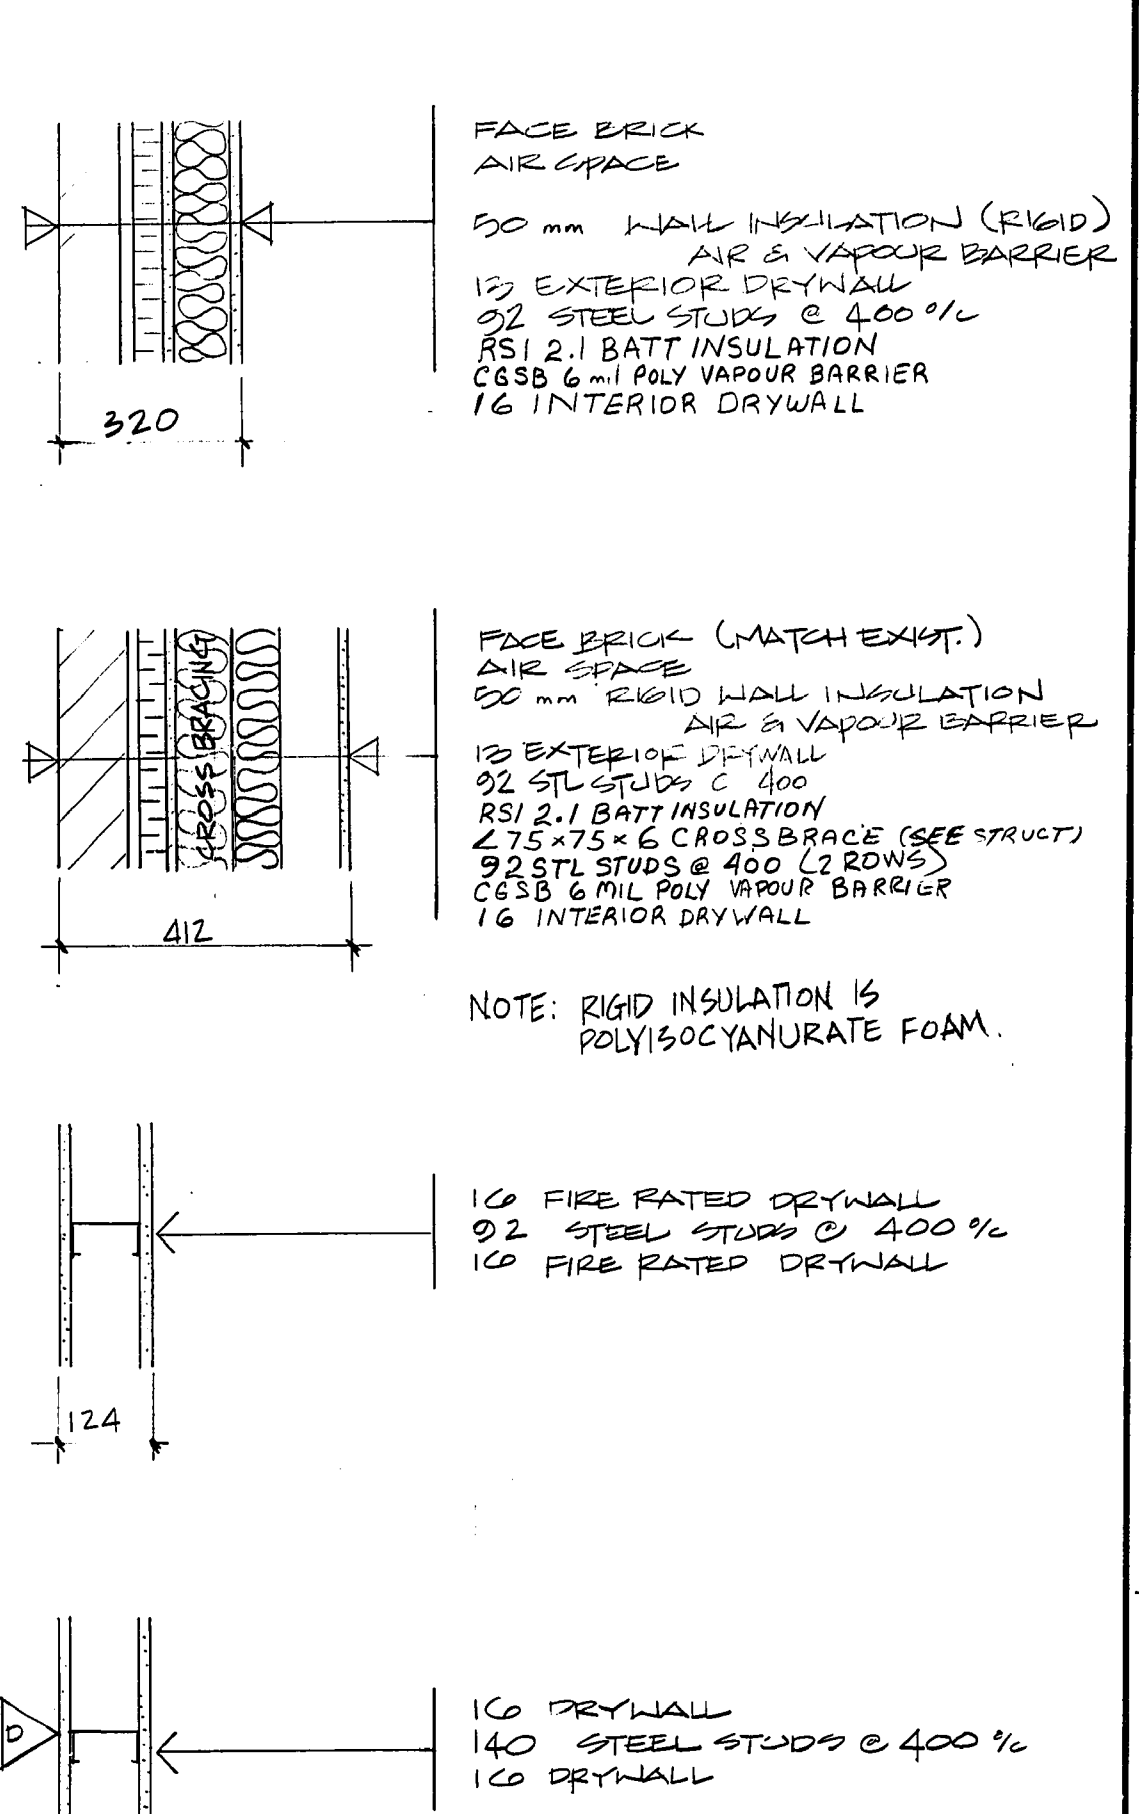 FACE BRICK
AIR SPACE
50 mm WALL INSULATION (RIGID)
AIR & VAPOUR BARRIER
13 EXTERIOR DRYWALL
92 STEEL STUDS @ 400 o/c
RSI 2.1 BATT INSULATION
CGSB 6 mil POLY VAPOUR BARRIER
16 INTERIOR DRYWALL
320
FACE BRICK (MATCH EXIST.)
AIR SPACE
50 mm RIGID WALL INSULATION
AIR & VAPOUR BARRIER
13 EXTERIOR DRYWALL
92 STL STUDS C 400
RSI 2.1 BATT INSULATION
∠75×75×6 CROSS BRACE (SEE STRUCT)
92 STL STUDS @ 400 (2 ROWS)
CGSB 6 MIL POLY VAPOUR BARRIER
16 INTERIOR DRYWALL
CROSS BRACING
412
NOTE: RIGID INSULATION IS
POLYISOCYANURATE FOAM.
16 FIRE RATED DRYWALL
92 STEEL STUDS @ 400 o/c
16 FIRE RATED DRYWALL
124
D
16 DRYWALL
140 STEEL STUDS @ 400 o/c
16 DRYWALL